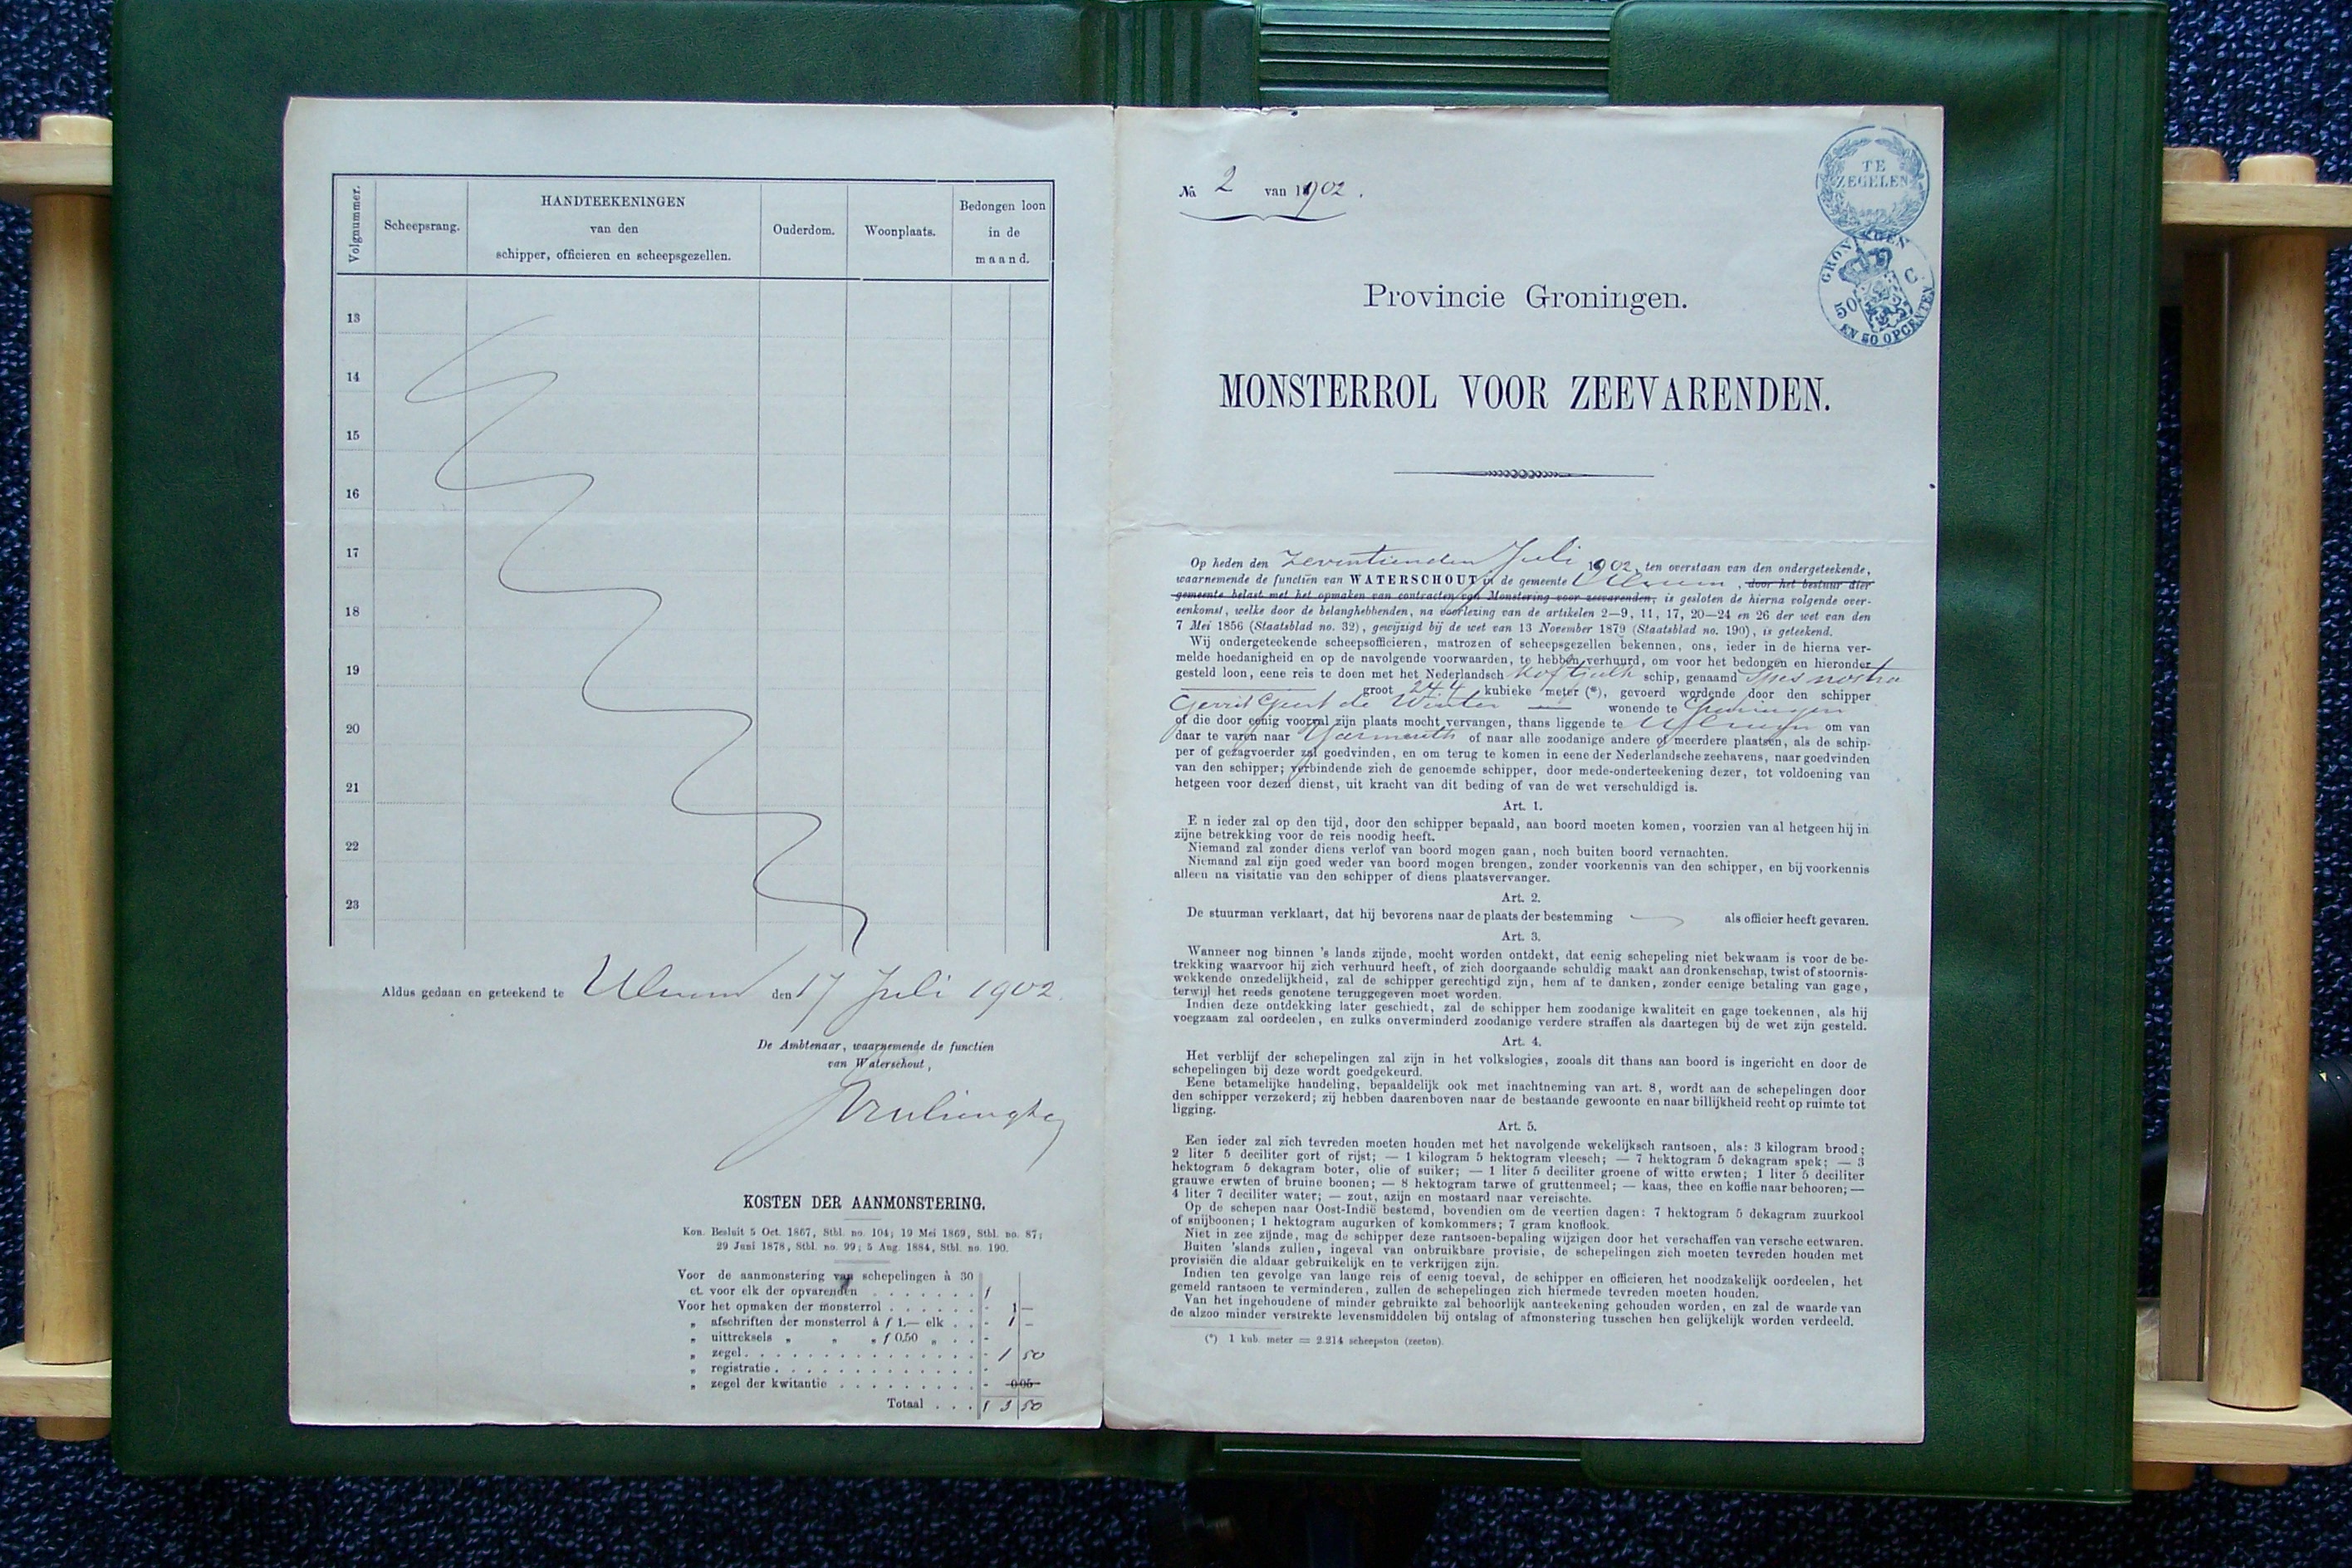 Volgnummer.
Scheepsrang.
HANDTEEKENINGEN
van den
schipper, officieren en scheepsgezellen.
Ouderdom.
Woonplaats.
Bedongen loon
in de
maand.
13
14
15
16
17
18
19
20
21
22
23
Aldus gedaan en geteekend te Ulrum den 17 Juli 1902.
De Ambtenaar, waarnemende de functien
van Waterschout,
KOSTEN DER AANMONSTERING.
Kon. Besluit 5 Oct. 1867, Stbl. no. 104; 19 Mei 1869, Stbl. no. 87;
29 Juni 1878, Stbl. no. 99; 5 Aug. 1884, Stbl. no. 190.
Voor de aanmonstering van schepelingen à 30
ct. voor elk der opvarenden . . . . . . . f
Voor het opmaken der monsterrol . . . . . . - 1 —
„ afschriften der monsterrol à f 1.— elk . . - 1 –
„ uittreksels „ „ „ f 0,50 „ . . -
„ zegel . . . . . . . . . . . . . . . - 1 50
„ registratie . . . . . . . . . . . . . -
„ zegel der kwitantie . . . . . . . . . - 0 05
Totaal . . . f 3 50
No 2 van 1902.
TE
ZEGELEN
GRONINGEN
50 C.
EN 50 OPCENTEN
Provincie Groningen.
MONSTERROL VOOR ZEEVARENDEN.
Op heden den zeventienden Juli 1902, ten overstaan van den ondergeteekende,
waarnemende de functiën van WATERSCHOUT in de gemeente Ulrum, door het bestuur dier
gemeente belast met het opmaken van contracten van Monstering voor zeevarenden, is gesloten de hierna volgende over-
eenkomst, welke door de belanghebbenden, na voorlezing van de artikelen 2—9, 11, 17, 20—24 en 26 der wet van den
7 Mei 1856 (Staatsblad no. 32), gewijzigd bij de wet van 13 November 1879 (Staatsblad no. 190), is geteekend.
Wij ondergeteekende scheepsofficieren, matrozen of scheepsgezellen bekennen, ons, ieder in de hierna ver-
melde hoedanigheid en op de navolgende voorwaarden, te hebben verhuurd, om voor het bedongen en hieronder
gesteld loon, eene reis te doen met het Nederlandsch Koftjalk schip, genaamd Spes nostra
groot 244 kubieke meter (*), gevoerd wordende door den schipper
Gerrit Geert de Winter — wonende te Groningen
of die door eenig voorval zijn plaats mocht vervangen, thans liggende te Ulrum om van
daar te varen naar Yarmouth of naar alle zoodanige andere of meerdere plaatsen, als de schip-
per of gezagvoerder zal goedvinden, en om terug te komen in eene der Nederlandsche zeehavens, naar goedvinden
van den schipper; verbindende zich de genoemde schipper, door mede-onderteekening dezer, tot voldoening van
hetgeen voor dezen dienst, uit kracht van dit beding of van de wet verschuldigd is.
Art. 1.
E n ieder zal op den tijd, door den schipper bepaald, aan boord moeten komen, voorzien van al hetgeen hij in
zijne betrekking voor de reis noodig heeft.
Niemand zal zonder diens verlof van boord mogen gaan, noch buiten boord vernachten.
Niemand zal zijn goed weder van boord mogen brengen, zonder voorkennis van den schipper, en bij voorkennis
alleen na visitatie van den schipper of diens plaatsvervanger.
Art. 2.
De stuurman verklaart, dat hij bevorens naar de plaats der bestemming — als officier heeft gevaren.
Art. 3.
Wanneer nog binnen 's lands zijnde, mocht worden ontdekt, dat eenig schepeling niet bekwaam is voor de be-
trekking waarvoor hij zich verhuurd heeft, of zich doorgaande schuldig maakt aan dronkenschap, twist of stoornis-
wekkende onzedelijkheid, zal de schipper gerechtigd zijn, hem af te danken, zonder eenige betaling van gage,
terwijl het reeds genotene teruggegeven moet worden.
Indien deze ontdekking later geschiedt, zal de schipper hem zoodanige kwaliteit en gage toekennen, als hij
voegzaam zal oordeelen, en zulks onverminderd zoodanige verdere straffen als daartegen bij de wet zijn gesteld.
Art. 4.
Het verblijf der schepelingen zal zijn in het volkslogies, zooals dit thans aan boord is ingericht en door de
schepelingen bij deze wordt goedgekeurd.
Eene betamelijke handeling, bepaaldelijk ook met inachtneming van art. 8, wordt aan de schepelingen door
den schipper verzekerd; zij hebben daarenboven naar de bestaande gewoonte en naar billijkheid recht op ruimte tot
ligging.
Art. 5.
Een ieder zal zich tevreden moeten houden met het navolgende wekelijksch rantsoen, als: 3 kilogram brood;
2 liter 5 deciliter gort of rijst; — 1 kilogram 5 hektogram vleesch; — 7 hektogram 5 dekagram spek; — 3
hektogram 5 dekagram boter, olie of suiker; — 1 liter 5 deciliter groene of witte erwten; 1 liter 5 deciliter
grauwe erwten of bruine boonen; — 8 hektogram tarwe of gruttenmeel; — kaas, thee en koffie naar behooren; —
4 liter 7 deciliter water; — zout, azijn en mostaard naar vereischte.
Op de schepen naar Oost-Indië bestemd, bovendien om de veertien dagen: 7 hektogram 5 dekagram zuurkool
of snijboonen; 1 hektogram augurken of komkommers; 7 gram knoflook.
Niet in zee zijnde, mag de schipper deze rantsoen-bepaling wijzigen door het verschaffen van versche eetwaren.
Buiten 'slands zullen, ingeval van onbruikbare provisie, de schepelingen zich moeten tevreden houden met
provisiën die aldaar gebruikelijk en te verkrijgen zijn.
Indien ten gevolge van lange reis of eenig toeval, de schipper en officieren het noodzakelijk oordeelen, het
gemeld rantsoen te verminderen, zullen de schepelingen zich hiermede tevreden moeten houden.
Van het ingehoudene of minder gebruikte zal behoorlijk aanteekening gehouden worden, en zal de waarde van
de alzoo minder verstrekte levensmiddelen bij ontslag of afmonstering tusschen hen gelijkelijk worden verdeeld.
(*) 1 kub. meter = 2.214 scheepston (zeeton).